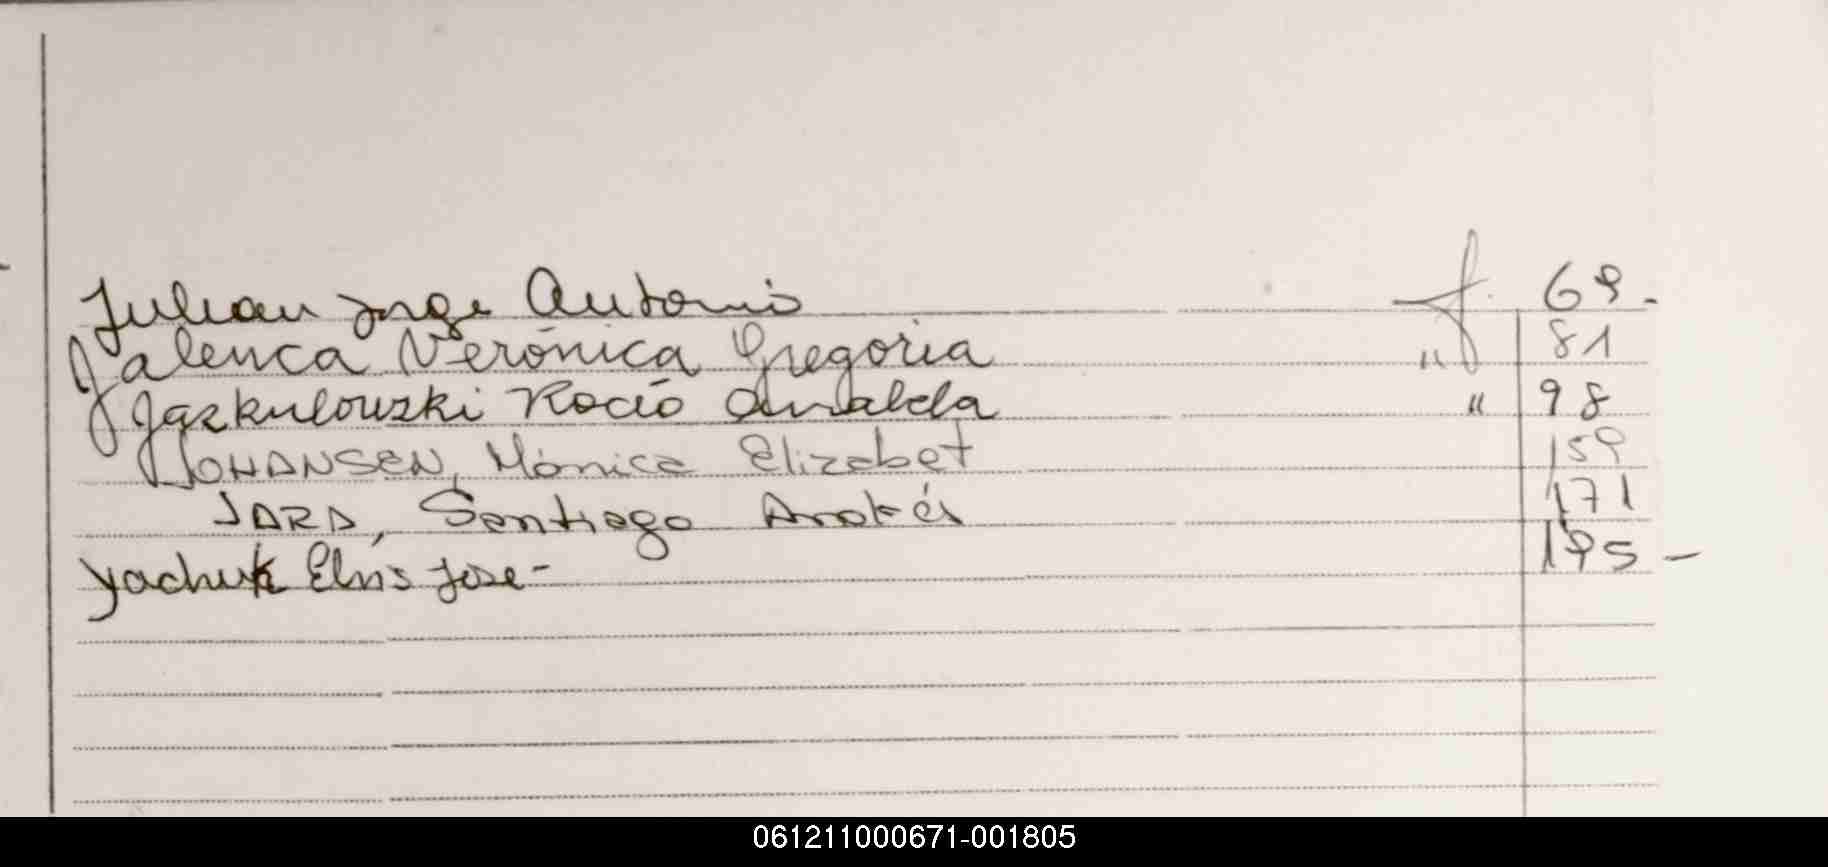 Julian Jorge Antonio f. 69.
Jalenca Verónica Gregoria " 81
Jaskulowski Rocío Analela " 98
JOHANSEN, Mónica Elizabet 159
JARA, Santiago Andrés 171
Yachuk Elvis Jose - 195 -
061211000671-001805